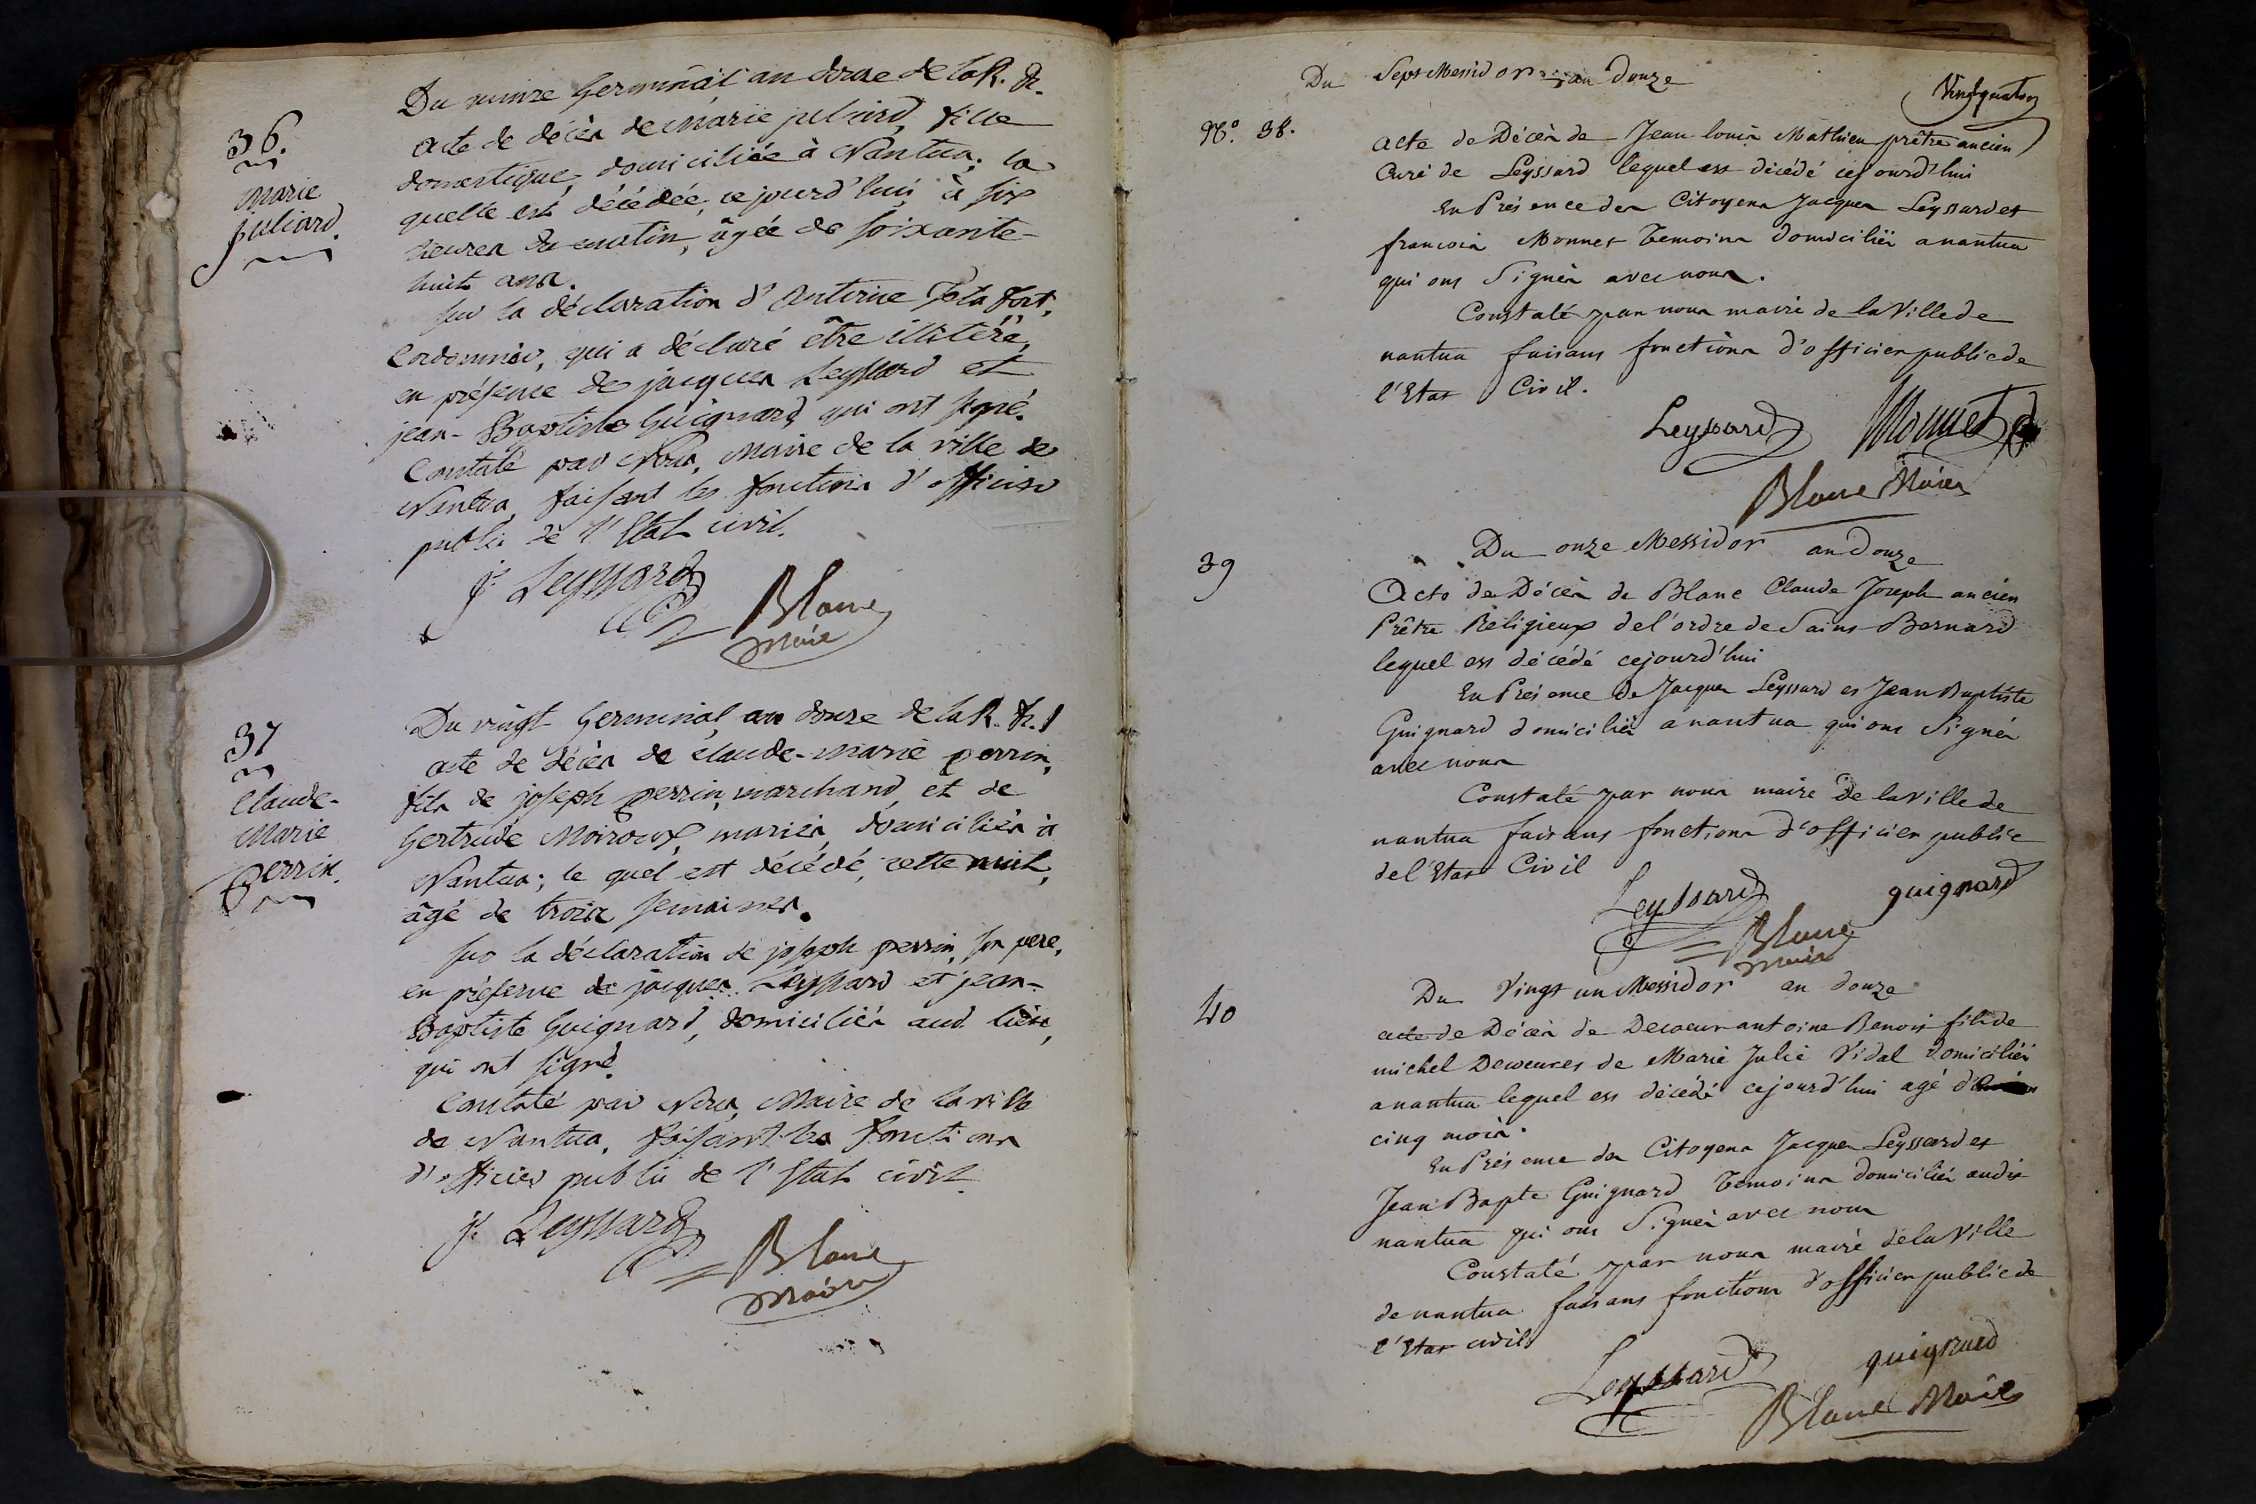 36.
Marie
juliard.
Du quinze Germinal an douze de la R. fr.
acte de décès de Marie juliard, fille
domestique, domiciliée à Nantua. la
quelle est décédée, ce jourd'hui à six
heures du matin, âgée de soixante-
huit ans.
sur la déclaration d'Antoine
Cordonnier, qui a déclaré être illitéré,
en présence de jacques Leyssard et
jean-Baptiste Guignard, qui ont signé.
Constaté par Nous, Maire de la ville de
Nantua, faisant les fonctions d'officier
public de l'Etat civil.
je. Leyssard
Blanc
Maire
37
Claude-
Marie
perrin.
Du vingt Germinal, an douze de la R. fr.
acte de décès de Claude-Marie perrin,
fils de joseph perrin, marchand, et de
Gertrude Moiroux, mariés, domiciliés à
Nantua; le quel est décédé, cette nuit,
âgé de trois semaines.
sur la déclaration de joseph perrin, son pere,
en présence de jacques Leyssard et jean-
Baptiste Guignard, domiciliés aud. lieu,
qui ont signé.
Constaté par Nous, Maire de la ville
de Nantua, faisant les fonctions
d'officier public de l'Etat civil.
je. Leyssard
Blanc
Maire
Vingtquatre
Du Sept Messidor an Douze
N.º 38.
Acte de Décès de Jean louis Mathieu prêtre ancien
Curé de Leyssard lequel est décédé cejourd'hui
En Présence des Citoyens Jacques Leyssard et
francois Monnet Temoins domiciliés a nantua
qui ont Signés avec nous.
Constaté par nous maire de la Ville de
nantua faisant fonctions d'officier public de
l'Etat Civil.
Leyssard Monnet
Blanc Maire
39
Du onze Messidor an Douze
Acte de Décès de Blanc Claude Joseph ancien
Prêtre Réligieux de l'ordre de Saint Bernard
lequel est décédé cejourd'hui
En Présence de Jacques Leyssard et Jean Baptiste
Guignard domiciliés a nantua qui ont Signés
avec nous
Constaté par nous maire de la Ville de
nantua faisant fonctions d'officier public
de l'Etat Civil
Leyssard guignard
Blanc
Maire
40
Du Vingt un Messidor an douze
acte de Décès de Decoeur antoine Benoit fils de
michel Decoeur et de Marie Julie Vidal domiciliés
a nantua lequel est décédé cejourd'hui agé
cinq mois.
En Présence des Citoyens Jacques Leyssard et
Jean Bapte Guignard Temoins domiciliés audit
nantua qui ont Signés avec nous
Constaté par nous maire de la Ville
de nantua faisant fonctions d'officier public de
l'Etat civil
Leyssard guignard
Blanc Maire